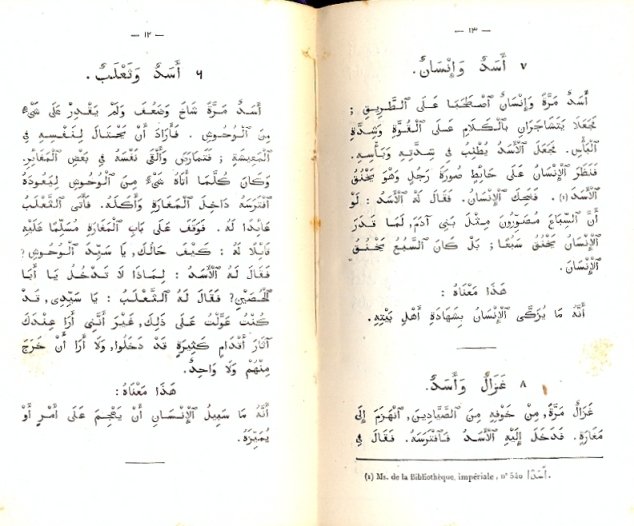 — ١٢ —
٦ أَسَدٌ وَثَعْلَبٌ.
أَسَدٌ مَرَّةً شَاخَ وَضَعُفَ وَلَمْ يَقْدِرْ عَلَى شَىْءٍ
مِنَ ٱلْوُحُوشِ. فَأَرَادَ أَنْ يَحْتَالَ لِنَفْسِهِ فِي
ٱلْمَعِيشَةِ; فَتَمَارَضَ وَأَلْقَى نَفْسَهُ فِي بَعْضِ ٱلْمَغَائِرِ.
وَكَانَ كُلَّمَا أَتَاهُ شَىْءٌ مِنَ ٱلْوُحُوشِ لِيَعُودَهُ
ٱفْتَرَسَهُ دَاخِلَ ٱلْمَغَارَةِ وَأَكَلَهُ. فَأَتَى ٱلثَّعْلَبُ
عَايِدًا لَهُ : فَوَقَفَ عَلَى بَابِ ٱلْمَغَارَةِ مُسَلِّمًا عَلَيْهِ
قَايِلًا لَهُ : كَيْفَ حَالُكَ, يَا سَيِّدَ ٱلْوُحُوشِ?
فَقَالَ لَهُ ٱلْأَسَدُ : لِمَاذَا لَا تَدْخُلُ يَا أَبَا
ٱلْحُصَيْنِ? فَقَالَ لَهُ ٱلثَّعْلَبُ : يَا سَيِّدِى, قَدْ
كُنْتُ عَوَّلْتُ عَلَى ذٰلِكَ, غَيْرَ أَنَّنِي أَرَا عِنْدَكَ
آثَارَ أَقْدَامٍ كَثِيرَةٍ قَدْ دَخَلُوا, وَلَا أَرَا أَنْ خَرَجَ
مِنْهُمْ وَلَا وَاحِدٌ.
هَذَا مَعْنَاهُ :
أَنَّهُ مَا سَبِيلُ ٱلْإِنْسَانِ أَنْ يَهْجِمَ عَلَى أَمْرٍ أَوْ
يُمَيِّزَهُ.
— ١٣ —
٧ أَسَدٌ وَإِنْسَانٌ.
أَسَدٌ مَرَّةً وَإِنْسَانٌ ٱصْطَحَبَا عَلَى ٱلطَّرِيقِ;
فَجَعَلَا يَتَشَاجَرَانِ بِٱلْكَلَامِ عَلَى ٱلْقُوَّةِ وَشِدَّةِ
ٱلْبَأْسِ. فَجَعَلَ ٱلْأَسَدُ يُطْنِبُ فِي شِدَّتِهِ وَبَأْسِهِ.
فَنَظَرَ ٱلْإِنْسَانُ عَلَى حَايِطٍ صُورَةَ رَجُلٍ وَهُوَ يَخْنُقُ
ٱلْأَسَدَ (١). فَضَحِكَ ٱلْإِنْسَانُ. فَقَالَ لَهُ ٱلْأَسَدُ : لَوْ
أَنَّ ٱلسِّبَاعَ مُصَوِّرُونَ مِثْلَ بَنِي آدَمَ, لَمَا قَدَرَ
ٱلْإِنْسَانُ يَخْنُقُ سَبُعًا; بَلْ كَانَ ٱلسَّبُعُ يَخْنُقُ
ٱلْإِنْسَانَ.
هَذَا مَعْنَاهُ :
أَنَّهُ مَا يُزَكَّى ٱلْإِنْسَانُ بِشَهَادَةِ أَهْلِ بَيْتِهِ.
٨ غَزَالٌ وَأَسَدٌ.
غَزَالٌ مَرَّةً, مِنْ خَوْفِهِ مِنَ ٱلصَّيَّادِينَ, ٱنْهَزَمَ إِلَى
مَغَارَةٍ. فَدَخَلَ إِلَيْهِ ٱلْأَسَدُ فَٱفْتَرَسَهُ. فَقَالَ فِي
(1) Ms. de la Bibliothèque impériale, n° 540 أَسَدًا.